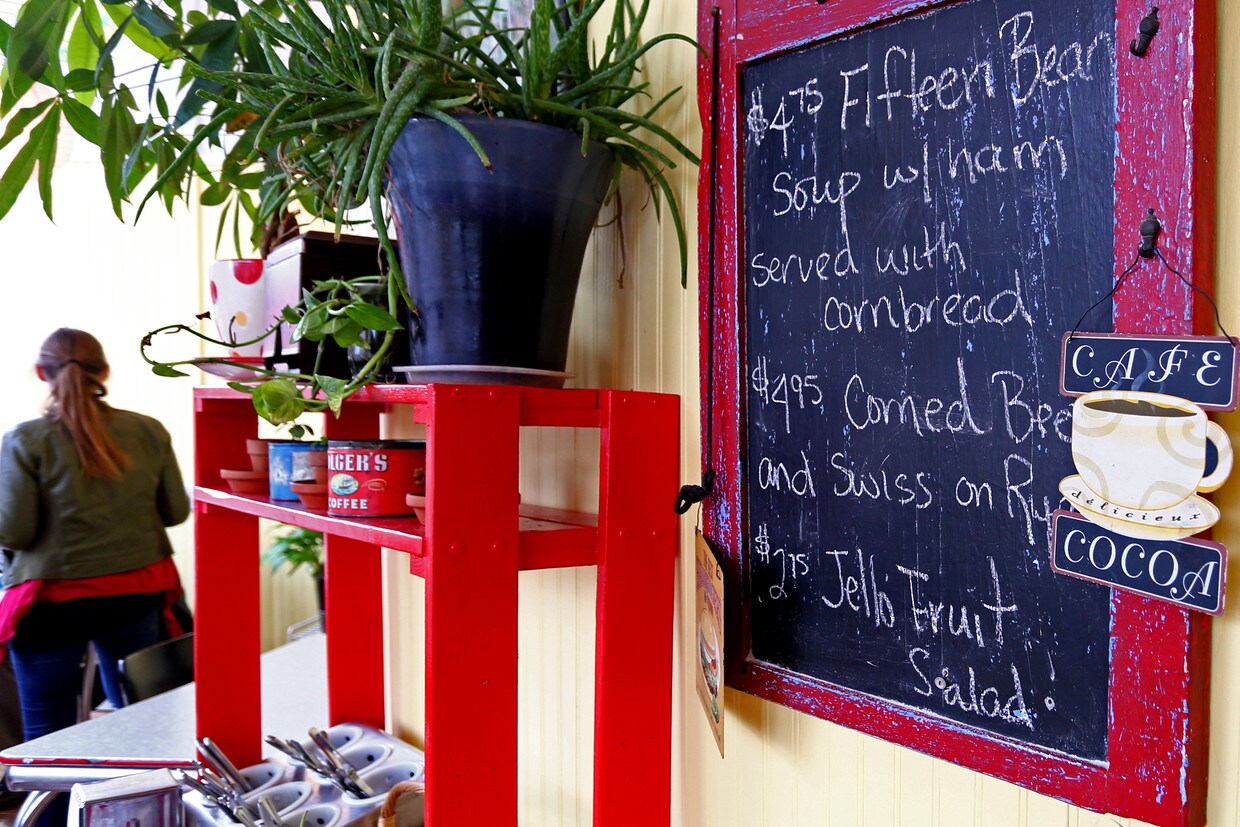 $4.75 Fifteen Bean
Soup w/ ham
served with
cornbread
$4.95 Corned Bee
and Swiss on Ry
$2.75 Jello Fruit
Salad!
CAFE
délicieux
COCOA
LGER'S
COFFEE